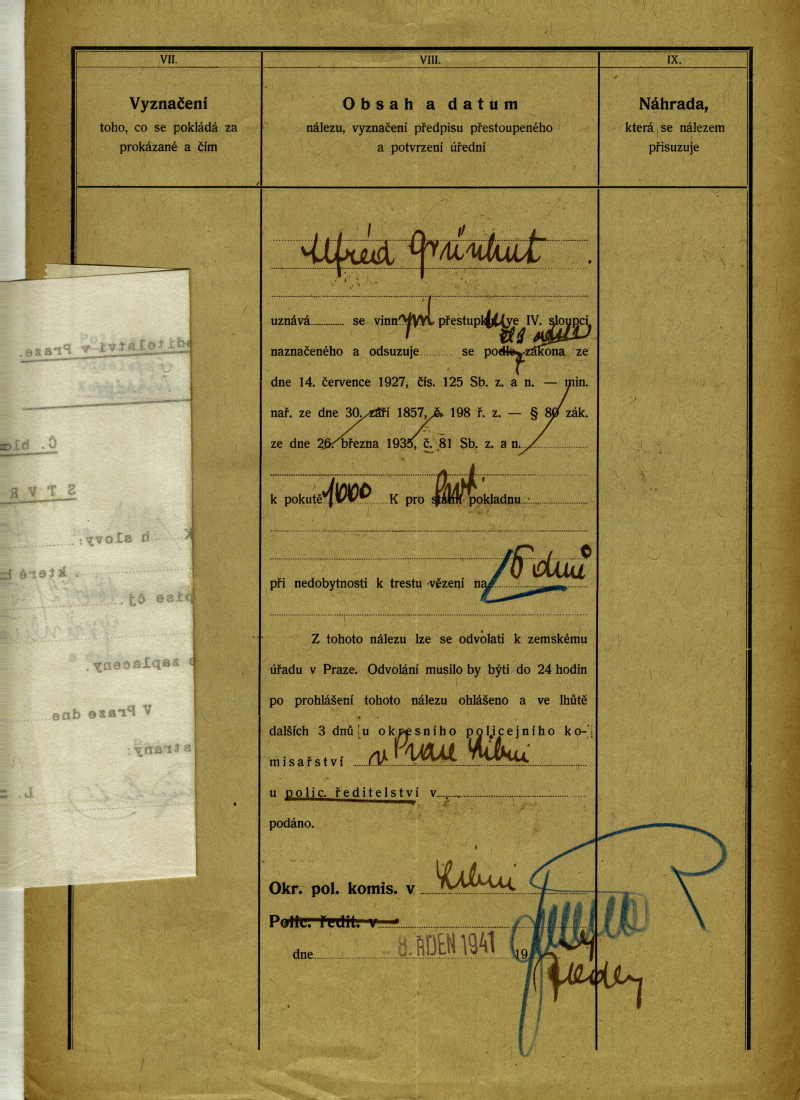 VII.
Vyznačení
toho, co se pokládá za
prokázané a čím
VIII.
Obsah a datum
nálezu, vyznačení předpisu přestoupeného
a potvrzení úřední
IX.
Náhrada,
která se nálezem
přisuzuje
Alfred Grünhut
uznává se vinným přestupku ve IV. sloupci
naznačeného a odsuzuje se podle zákona ze
dne 14. července 1927, čís. 125 Sb. z. a n. — min.
nař. ze dne 30. září 1857, č. 198 ř. z. — § 80 zák.
ze dne 26. března 1935, č. 81 Sb. z. a n.
k pokutě 1000 K pro státní pokladnu
při nedobytnosti k trestu vězení na dnů
Z tohoto nálezu lze se odvolati k zemskému
úřadu v Praze. Odvolání musilo by býti do 24 hodin
po prohlášení tohoto nálezu ohlášeno a ve lhůtě
dalších 3 dnů u okresního policejního ko-
misařství v Praze Libni
u polic. ředitelství v
podáno.
Okr. pol. komis. v Libni
Polic. ředit. v
dne 8. ŘÍJEN 1941 19
ditelství v Praze.
Č. blo
STVR
K h slovy:
které b
píse čj.
zaplaceny.
V Praze dne
strany:
L.